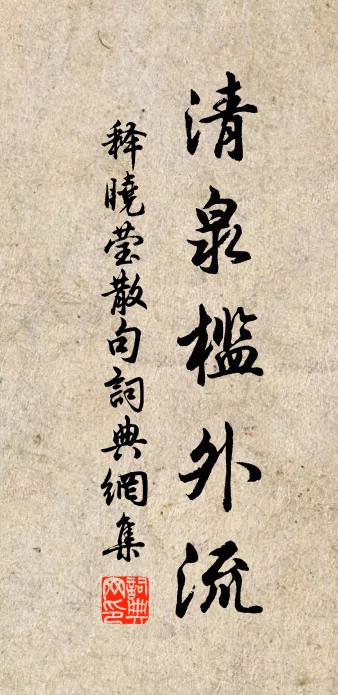 清泉檻外流
释曉莹散句詞典網集
詞典網印